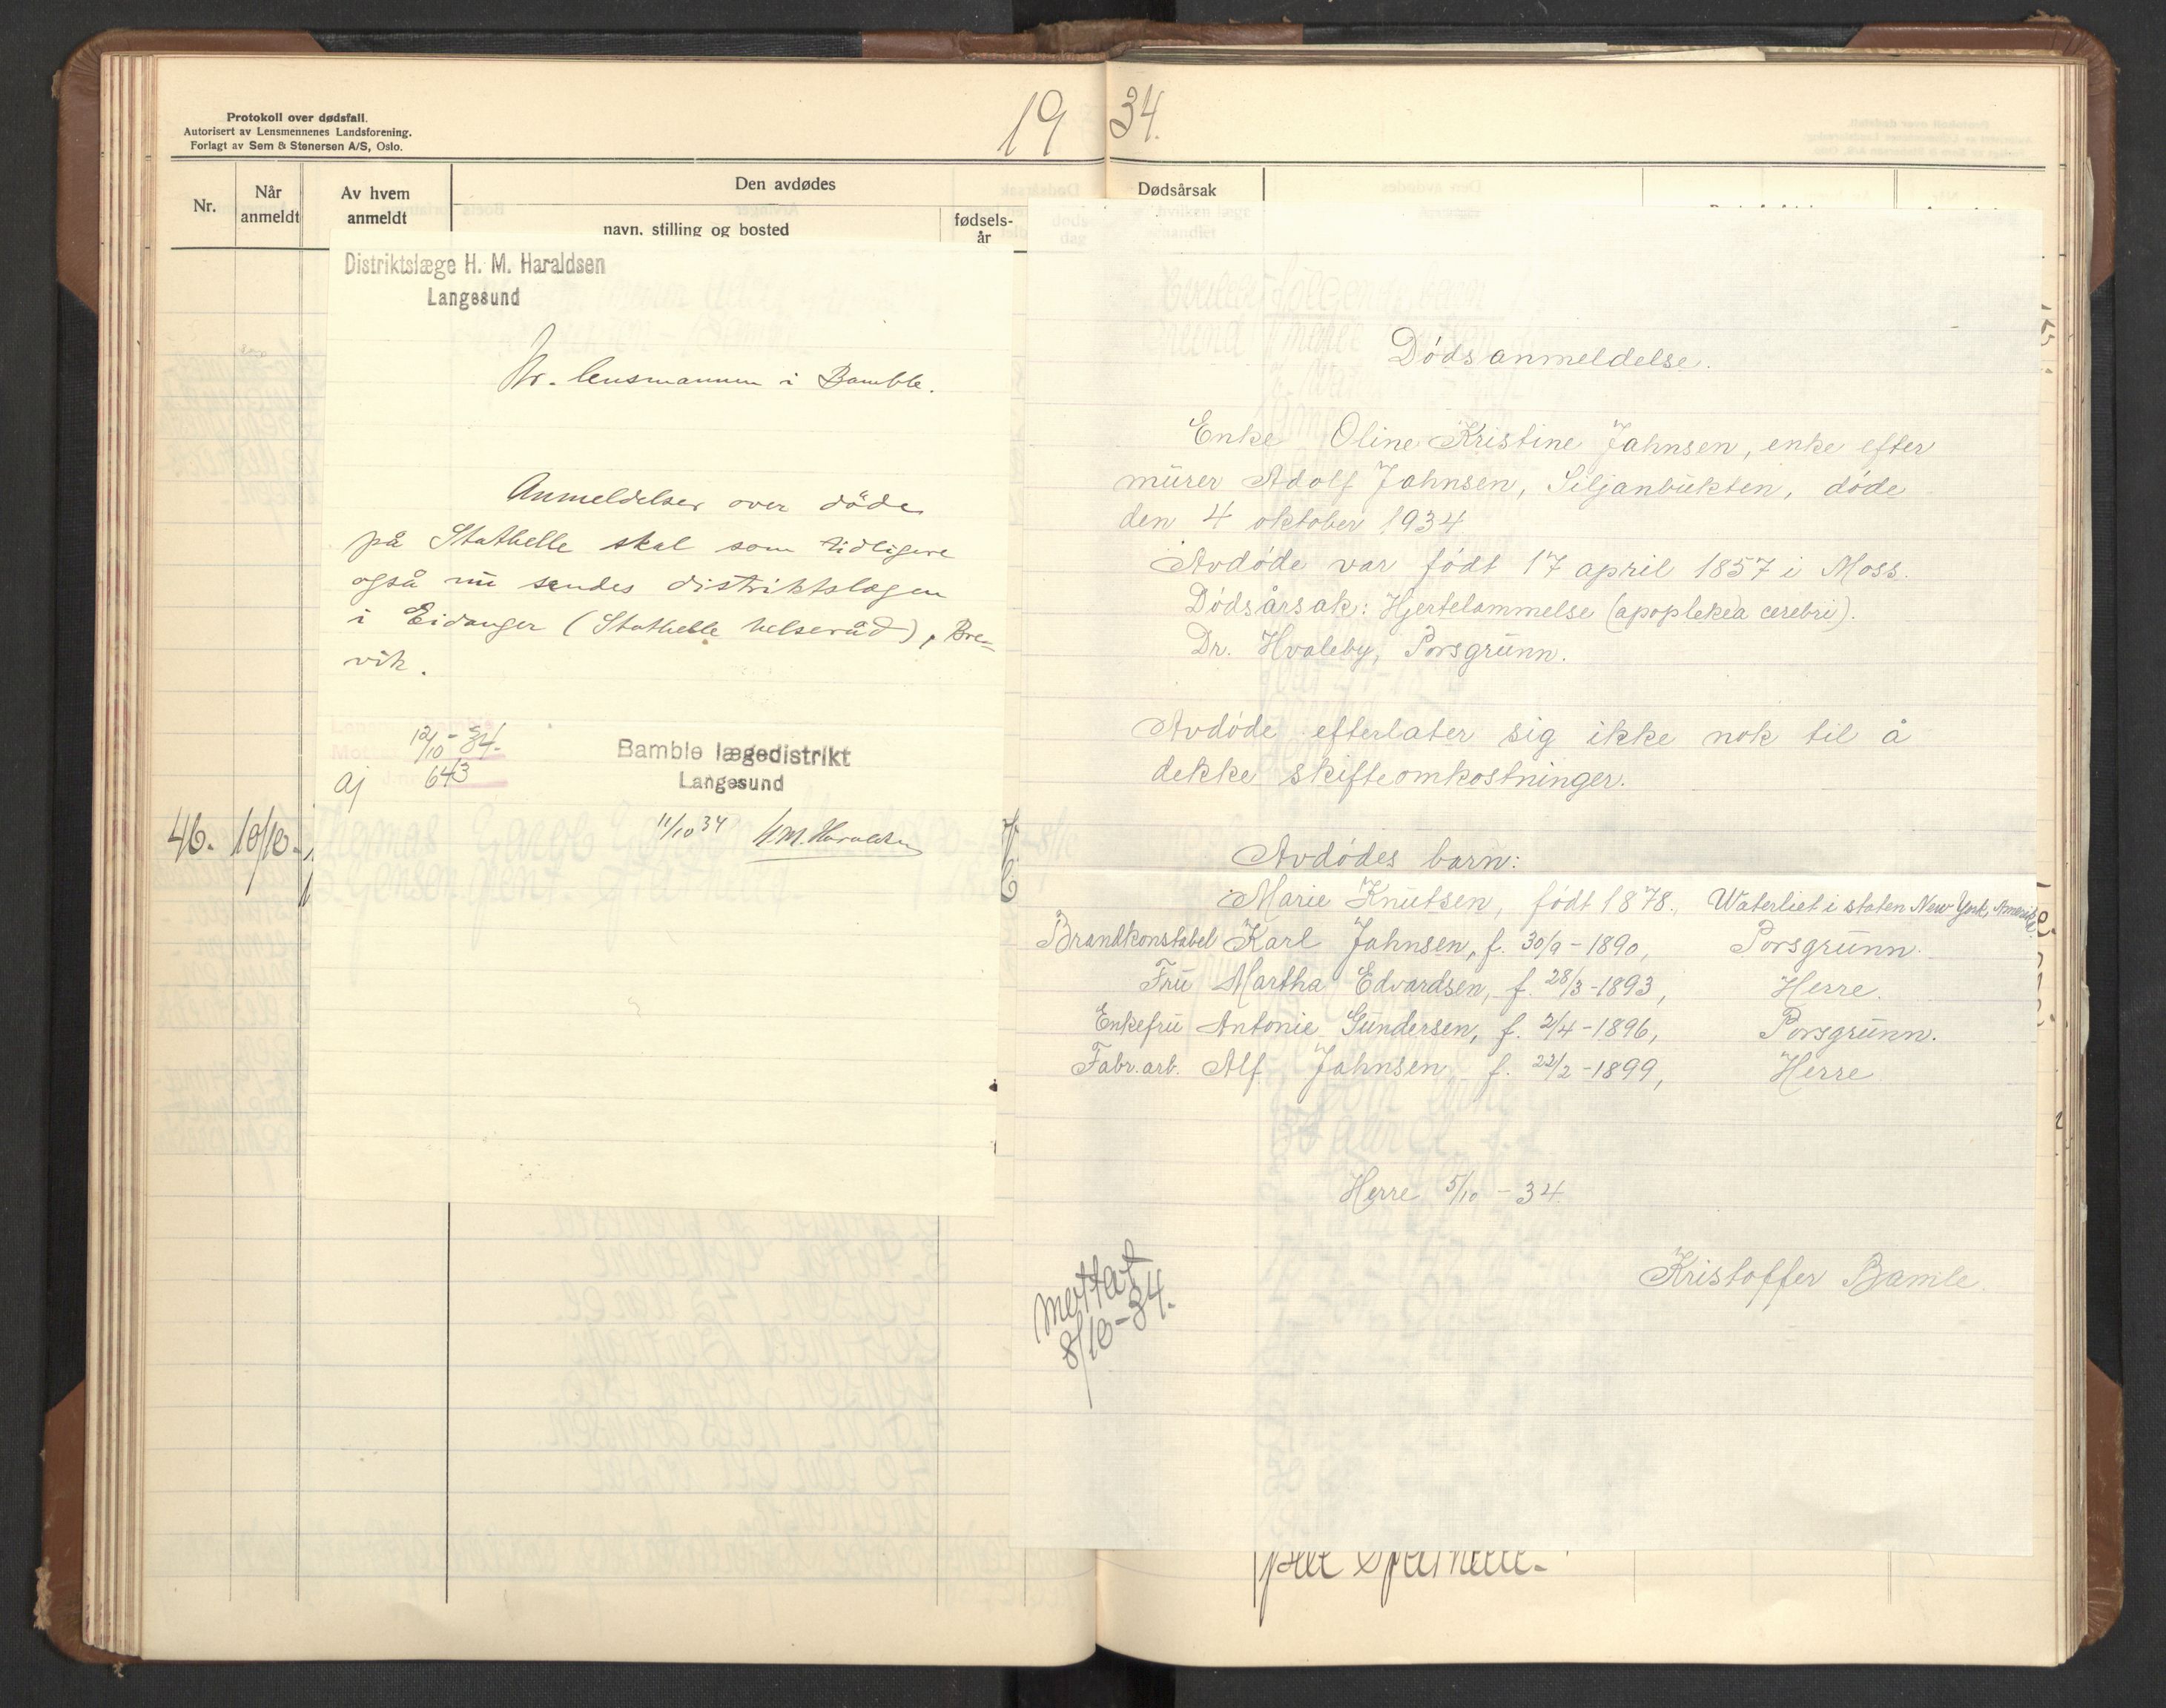 Protokoll over dødsfall.
Autorisert av Lensmennenes Landsforening.
Forlagt av Sem & Stenersen A/S, Oslo.
19 34.
Nr.
Når anmeldt
Av hvem anmeldt
Den avdødes
navn, stilling og bosted
fødsels-
år
Dødsårsak
46. 10/10.
Distriktslæge H. M. Haraldsen
Langesund
Hr. lensmannen i Bamble.
Anmeldelser over döde
på Stathelle skal som tidligere
også nu sendes distriktslægen
i Eidanger (Stathelle helseråd), Bre-
vik.
12/10-34.
aj 643
Bamble lægedistrikt
Langesund
11/10 34 H.M. Haraldsen
Dødsanmeldelse.
Enke Oline Kristine Jahnsen, enke efter
mūrer Adolf Jahnsen, Siljanbūkten, døde
den 4 oktober 1934
Avdøde var født 17 april 1857 i Moss.
Dødsårsak: Hjertelammelse (apoplekea cerebri).
Dr. Hvaleby, Porsgrūnn.
Avdøde efterlater sig ikke nok til å
dekke skifteomkostninger.
Avdødes barn:
Marie Knūtsen, født 1878., Waterliet i staten New York, Amerika.
Brandkonstabel Karl Jahnsen, f. 30/9-1890, Porsgrūnn.
Frū Martha Edvardsen, f. 28/3-1893, Herre.
Enkefrū Antonie Gūndersen, f. 2/4-1896, Porsgrūnn.
Fabr.arb. Alf Jahnsen f. 22/2-1899, Herre
Herre 5/10-34.
Kristoffer Bamle.
mottat
8/10-34.